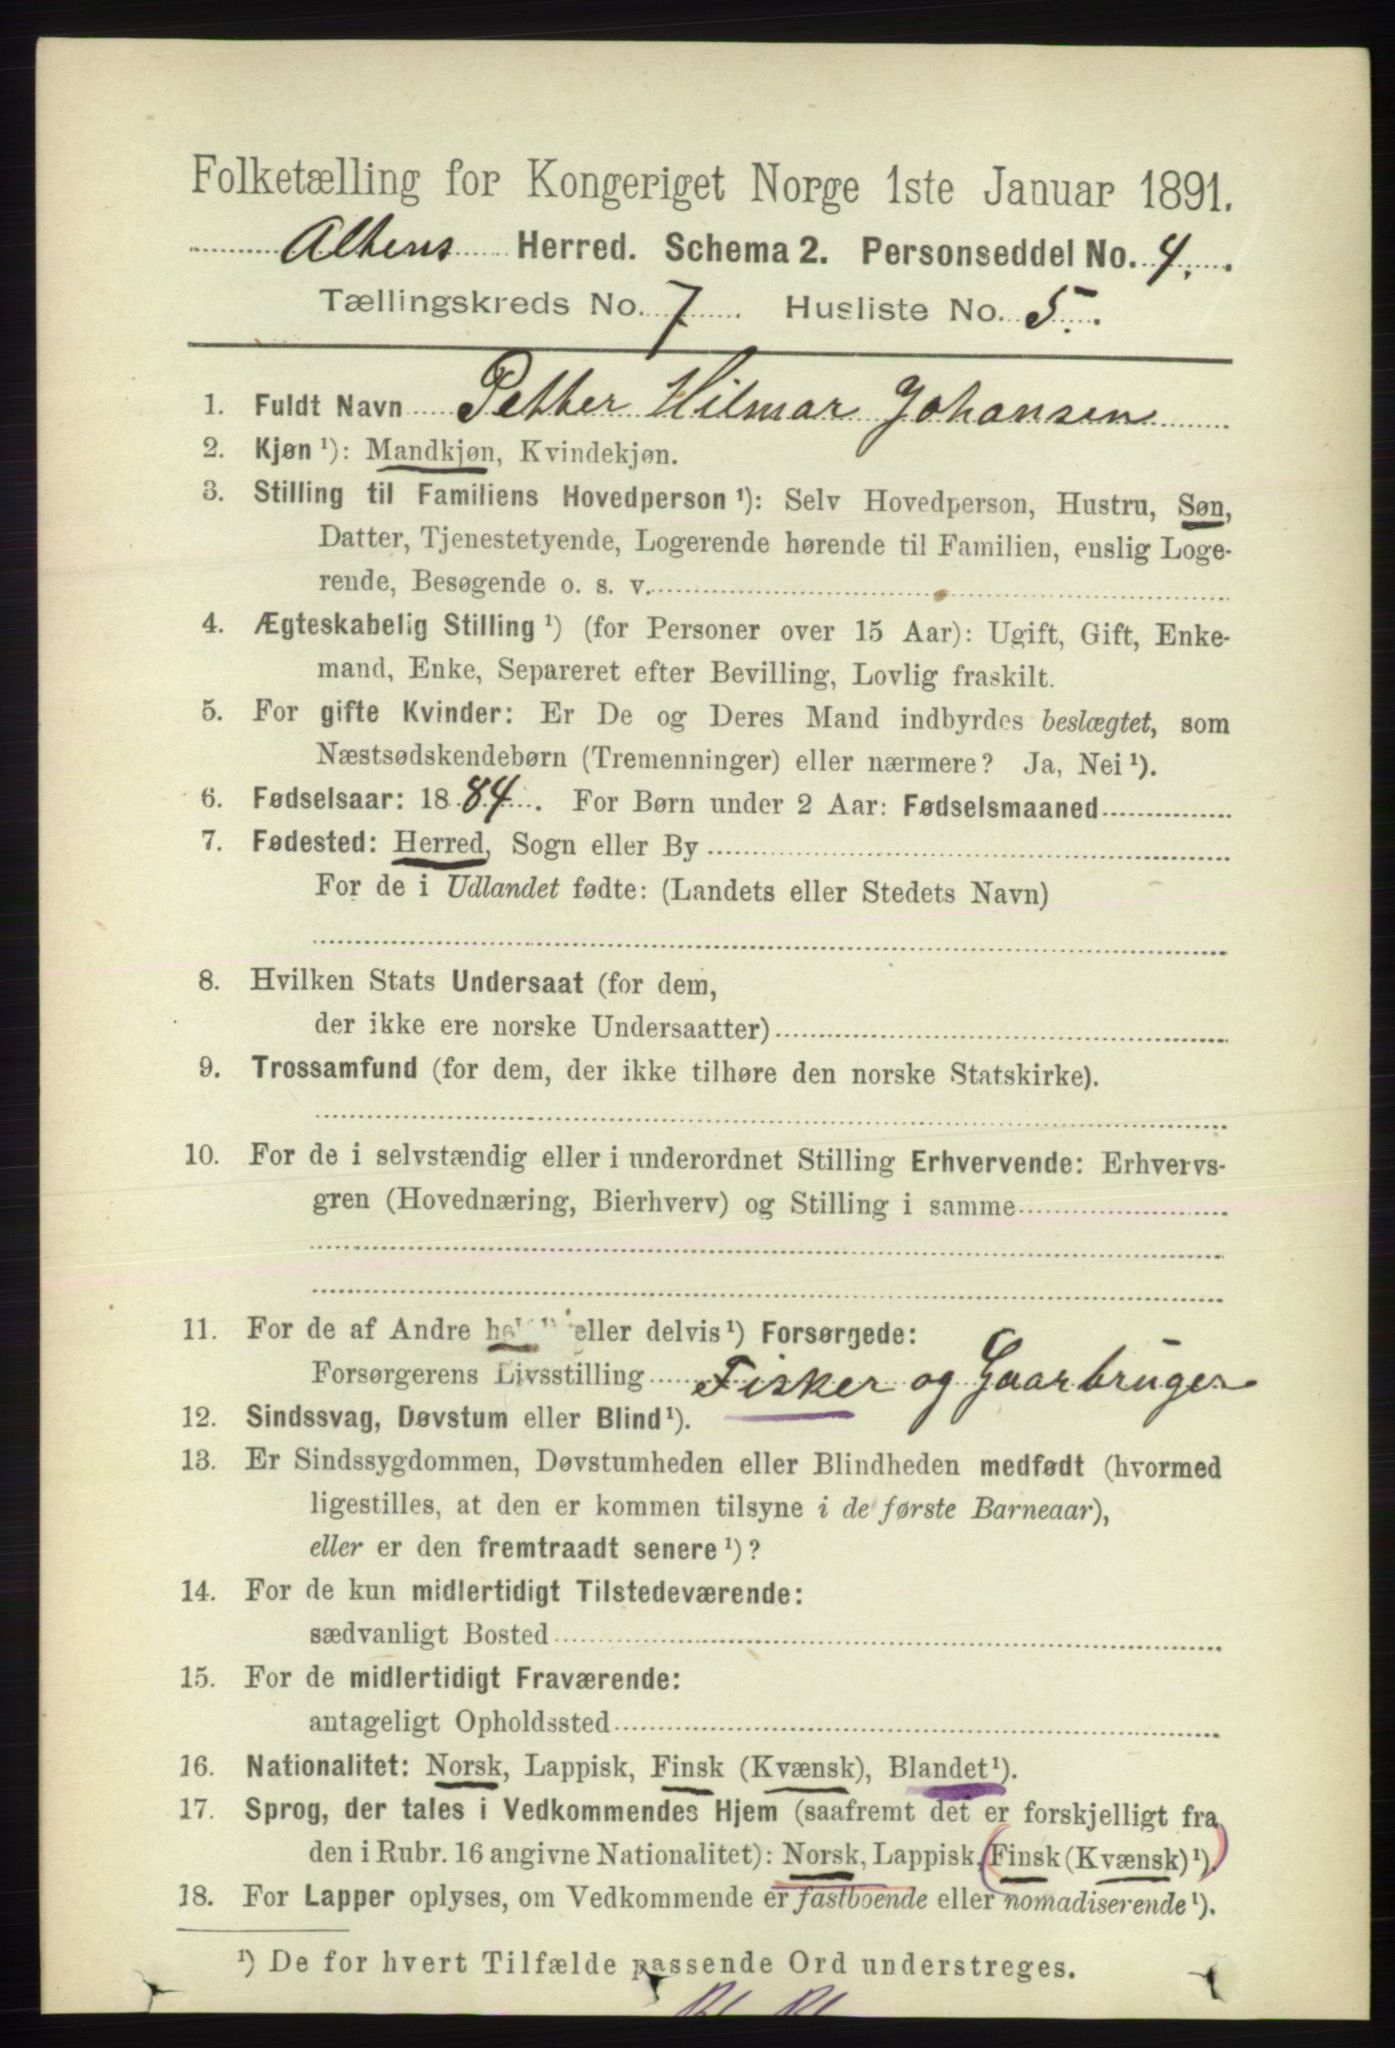 Folketælling for Kongeriget Norge 1ste Januar 1891.
Altens Herred. Schema 2. Personseddel No. 4.
Tællingskreds No. 7 Husliste No. 5.
1. Fuldt Navn Petter Hilmar Johansen
2. Kjøn ¹): Mandkjøn, Kvindekjøn.
3. Stilling til Familiens Hovedperson ¹): Selv Hovedperson, Hustru, Søn,
Datter, Tjenestetyende, Logerende hørende til Familien, enslig Loge-
rende, Besøgende o. s. v.
4. Ægteskabelig Stilling ¹) (for Personer over 15 Aar): Ugift, Gift, Enke-
mand, Enke, Separeret efter Bevilling, Lovlig fraskilt.
5. For gifte Kvinder: Er De og Deres Mand indbyrdes beslægtet, som
Næstsødskendebørn (Tremenninger) eller nærmere? Ja, Nei ¹).
6. Fødselsaar: 1884. For Børn under 2 Aar: Fødselsmaaned
7. Fødested: Herred, Sogn eller By
For de i Udlandet fødte: (Landets eller Stedets Navn)
8. Hvilken Stats Undersaat (for dem,
der ikke ere norske Undersaatter)
9. Trossamfund (for dem, der ikke tilhøre den norske Statskirke).
10. For de i selvstændig eller i underordnet Stilling Erhvervende: Erhvervs-
gren (Hovednæring, Bierhverv) og Stilling i samme
11. For de af Andre eller delvis ¹) Forsørgede:
Forsørgerens Livsstilling Fisker og Gaarbruger
12. Sindssvag, Døvstum eller Blind ¹).
13. Er Sindssygdommen, Døvstumheden eller Blindheden medfødt (hvormed
ligestilles, at den er kommen tilsyne i de første Barneaar),
eller er den fremtraadt senere ¹)?
14. For de kun midlertidigt Tilstedeværende:
sædvanligt Bosted
15. For de midlertidigt Fraværende:
antageligt Opholdssted
16. Nationalitet: Norsk, Lappisk, Finsk (Kvænsk), Blandet ¹).
17. Sprog, der tales i Vedkommendes Hjem (saafremt det er forskjelligt fra
den i Rubr. 16 angivne Nationalitet): Norsk, Lappisk, (Finsk (Kvænsk) ¹).)
18. For Lapper oplyses, om Vedkommende er fastboende eller nomadiserende ¹).
¹) De for hvert Tilfælde passende Ord understreges.